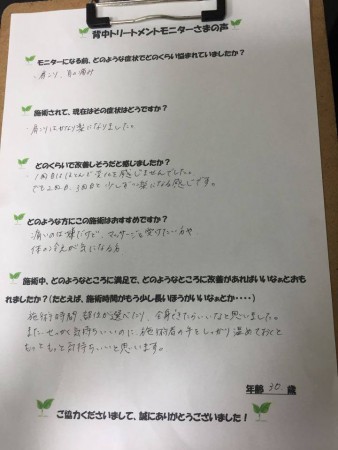 背中トリートメントモニターさまの声
モニターになる前、どのような症状でどのくらい悩まれていましたか?
・肩こり、首の痛み
施術されて、現在はその症状はどうですか?
・肩こりはかなり楽になりました。
どのくらいで改善しそうだと感じましたか?
1回目はほとんど変化を感じませんでした。
でも2回目、3回目と少しずつ楽になる感じです。
どのような方にこの施術はおすすめですか?
痛いのは嫌だけど、マッサージを受けたい方や
体の冷えが気になる方
施術中、どのようなところに満足で、どのようなところに改善があればいいなぁとおも
れましたか?(たとえば、施術時間がもう少し長いほうがいいなぁとか・・・・)
施術時間、部位が選べたり、全身できたらいいなと思いました。
また、せっかく気持ちいいのに、施術者の手をしっかり温めておくと
もっともっと気持ちいいと思います。
年齢 30 歳
ご協力くださいまして、誠にありがとうございました!